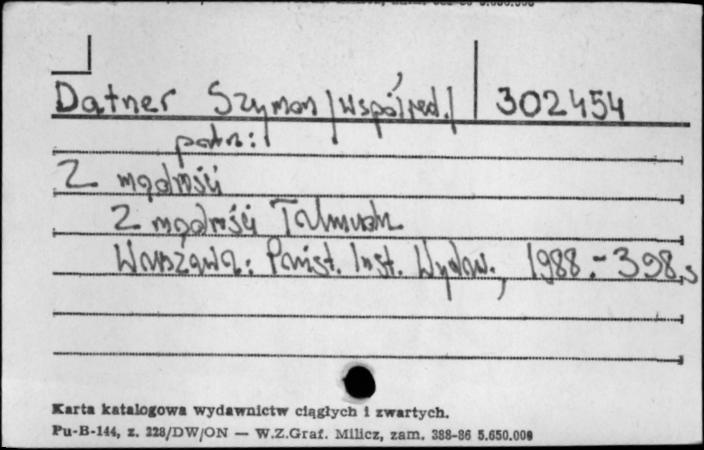 Datner Szymon /współred./ 302454
patrz:
Z mądrości
Z mądrości Talmudu
Warszawa: Państ. Inst. Wydaw., 1988. - 398 s
Karta katalogowa wydawnictw ciągłych i zwartych.
Pu-B-144, z. 228/DW/ON — W.Z.Graf. Milicz, zam. 388-86 5.650.000